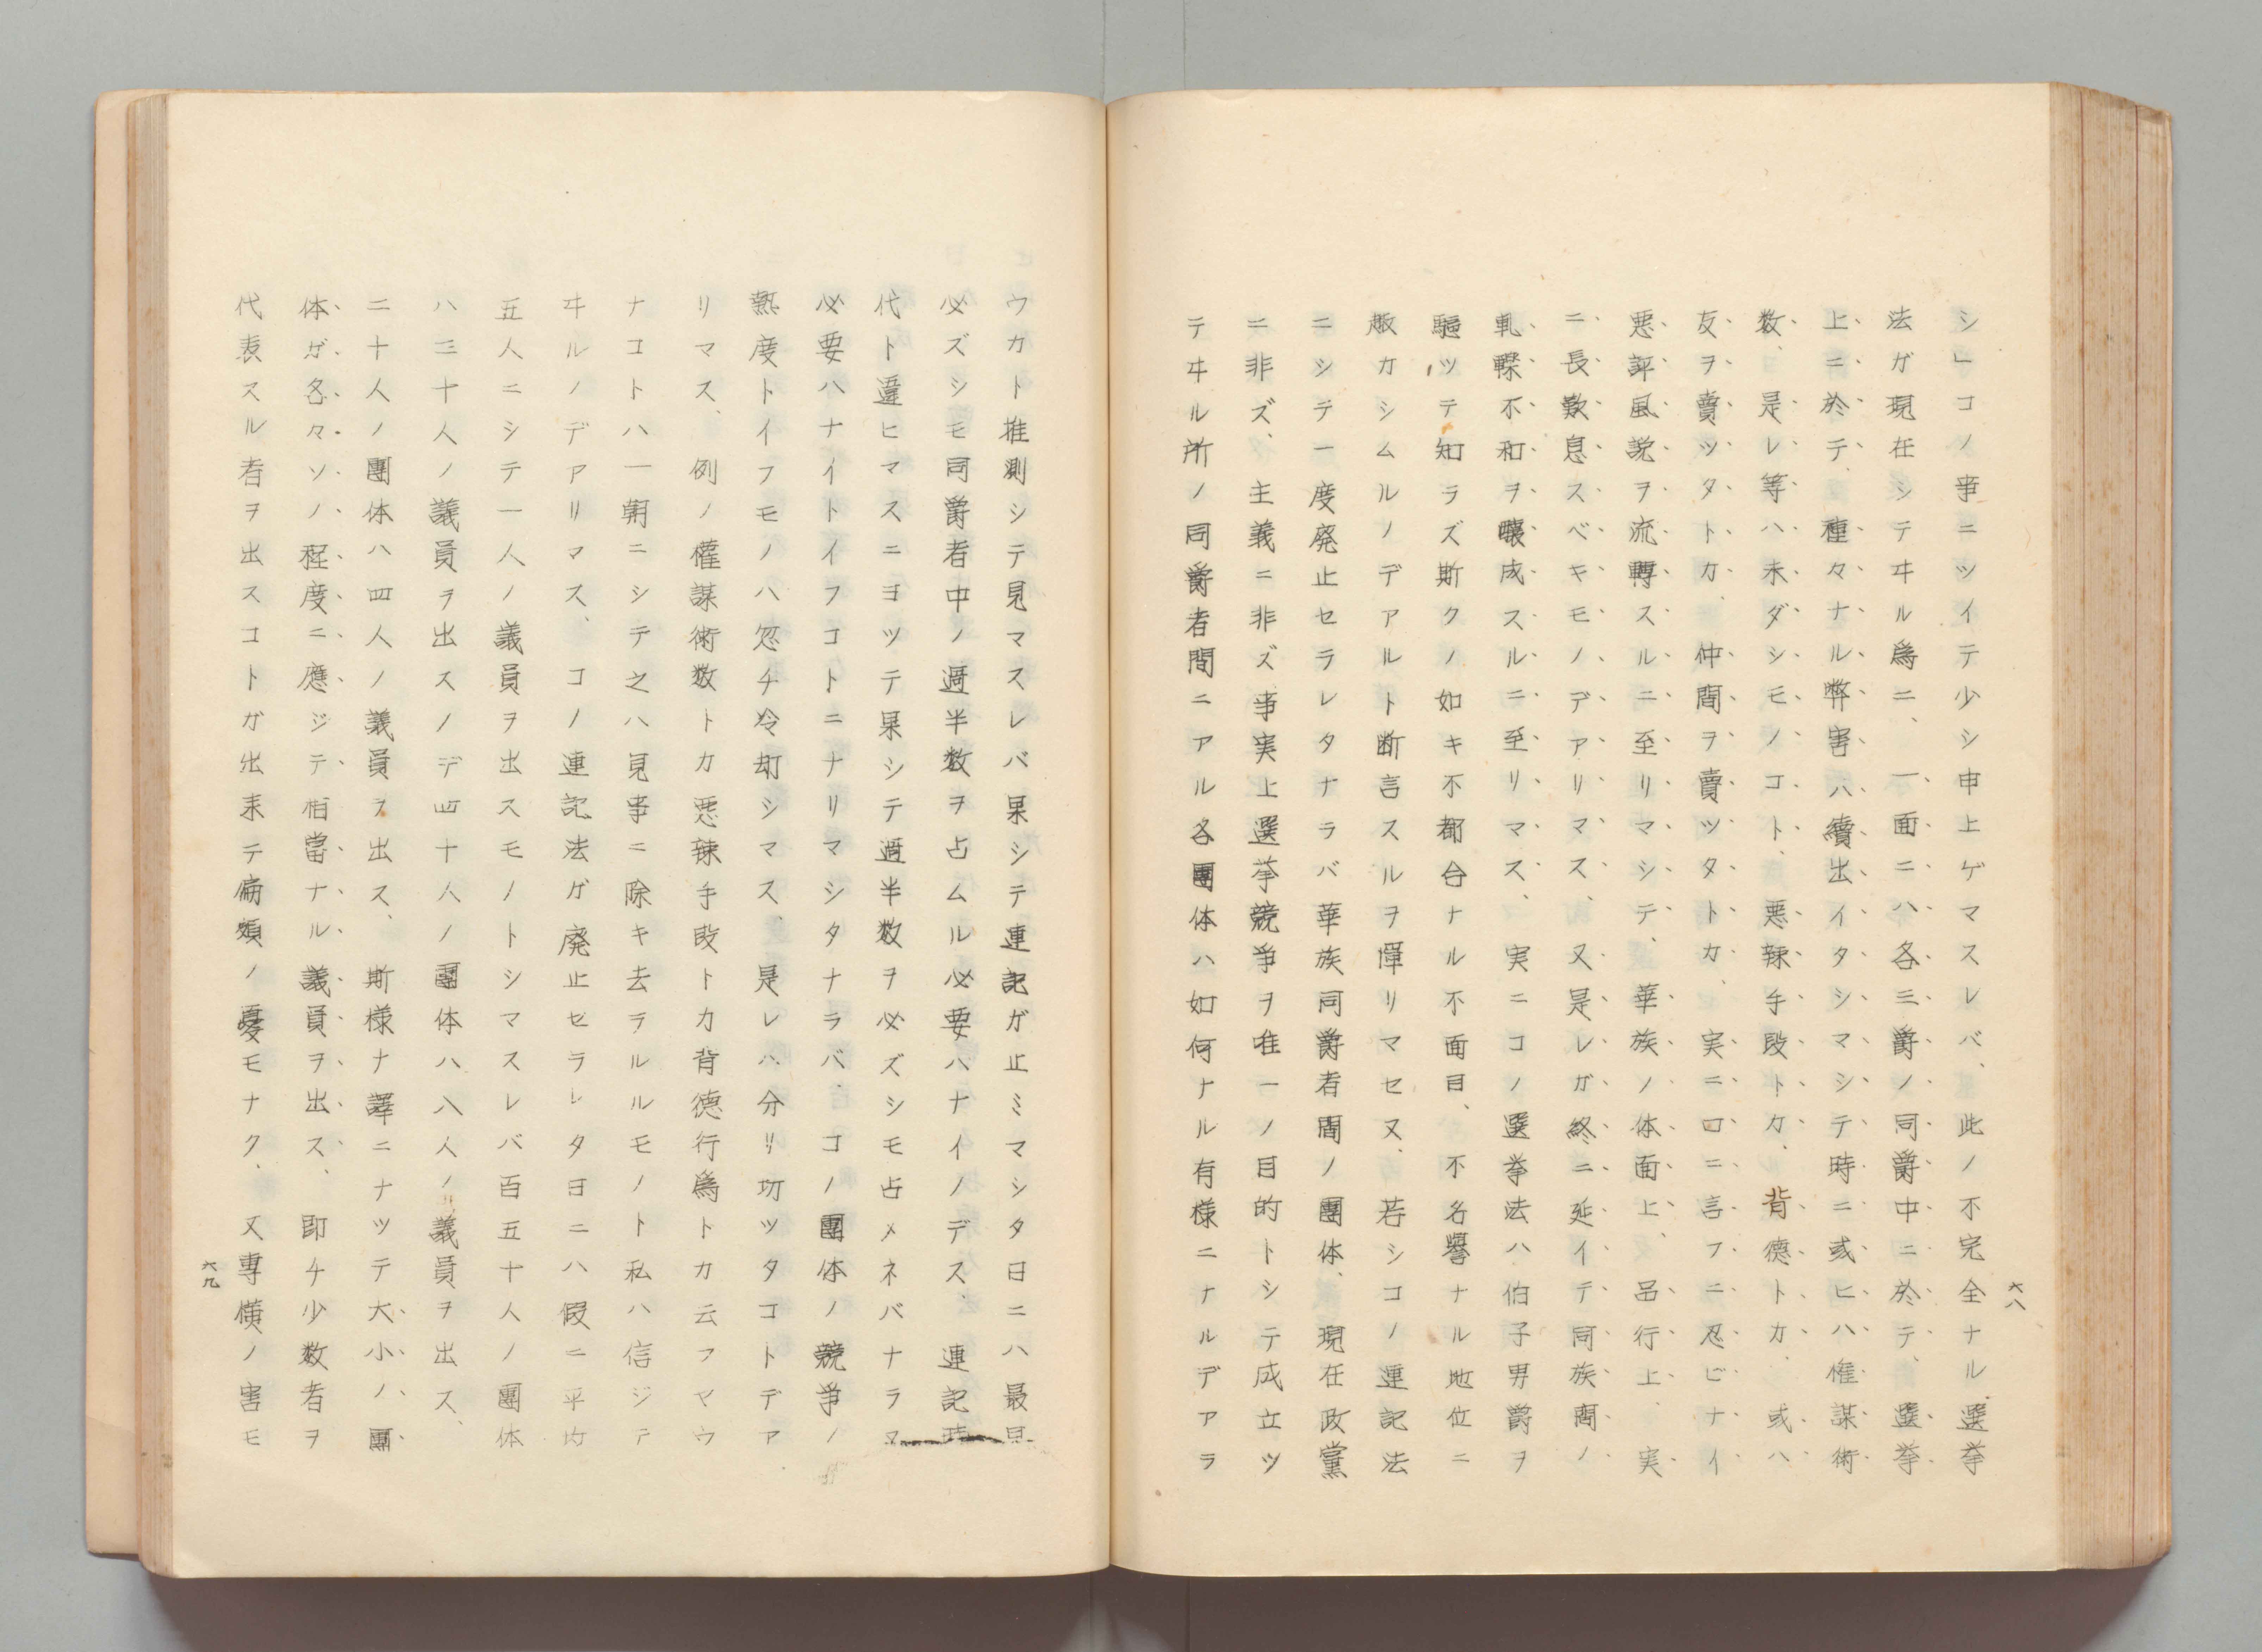 六八
シ」コノ事ニツイテ少シ申上ゲマスレバ、此ノ不完全ナル選挙
法ガ現在シテヰル爲ニ、一面ニハ各三爵ノ同爵中ニ於テ、選挙
上ニ於テ、種々ナル弊害ハ續出イタシマシテ時ニ或ヒハ権謀術
数、是レ等ハ未ダシモノコト、悪辣手段トカ、背德トカ、或ハ
友ヲ賣ツタトカ、仲間ヲ賣ツタトカ、実ニ口ニ言フニ忍ビナイ
悪評風説ヲ流轉スルニ至リマシテ、華族ノ体面上、品行上、実
ニ長歎息スベキモノデアリマス、又是レガ終ニ延イテ同族間ノ
軋轢不和ヲ醸成スルニ至リマス、実ニコノ選挙法ハ伯子男爵ヲ
驅ツテ知ラズ斯クノ如キ不都合ナル不面目、不名譽ナル地位ニ
趣カシムルノデアルト断言スルヲ憚リマセヌ、若シコノ連記法
ニシテ一度廃止セラレタナラバ華族同爵者間ノ團体、現在政黨
ニ非ズ、主義ニ非ズ事実上選挙競爭ヲ唯一ノ目的トシテ成立ツ
テヰル所ノ同爵者間ニアル各團体ハ如何ナル有様ニナルデアラ
ウカト推測シテ見マスレバ果シテ連記ガ止ミマシタ日ニハ最早
必ズシモ同爵者中ノ過半数ヲ占ムル必要ハナイノデス、連記時
代ト違ヒマスニヨツテ果シテ過半数ヲ必ズシモ占メネバナラヌ
必要ハナイトイフコトニナリマシタナラバ、コノ團体ノ競爭ノ
熱度トイフモノハ忽チ冷却シマス、是レハ分リ切ツタコトデア
リマス、例ノ權謀術数トカ悪辣手段トカ背德行爲トカ云フヤウ
ナコトハ一朝ニシテ之ハ見事ニ除キ去ラルルモノト私ハ信ジテ
ヰルノデアリマス、コノ連記法ガ廃止セラレタ日ニハ假ニ平均
五人ニシテ一人ノ議員ヲ出スモノトシマスレバ百五十人ノ團体
ハ三十人ノ議員ヲ出スノデ四十人ノ團体ハ八人ノ議員ヲ出ス、
二十人ノ團体ハ四人ノ議員ヲ出ス、斯様ナ譯ニナツテ大小ノ團
体ガ各々ソノ程度ニ應ジテ相當ナル議員ヲ出ス、即チ少数者ヲ
代表スル者ヲ出スコトガ出来テ偏頗ノ憂モナク、又專橫ノ害モ
六九